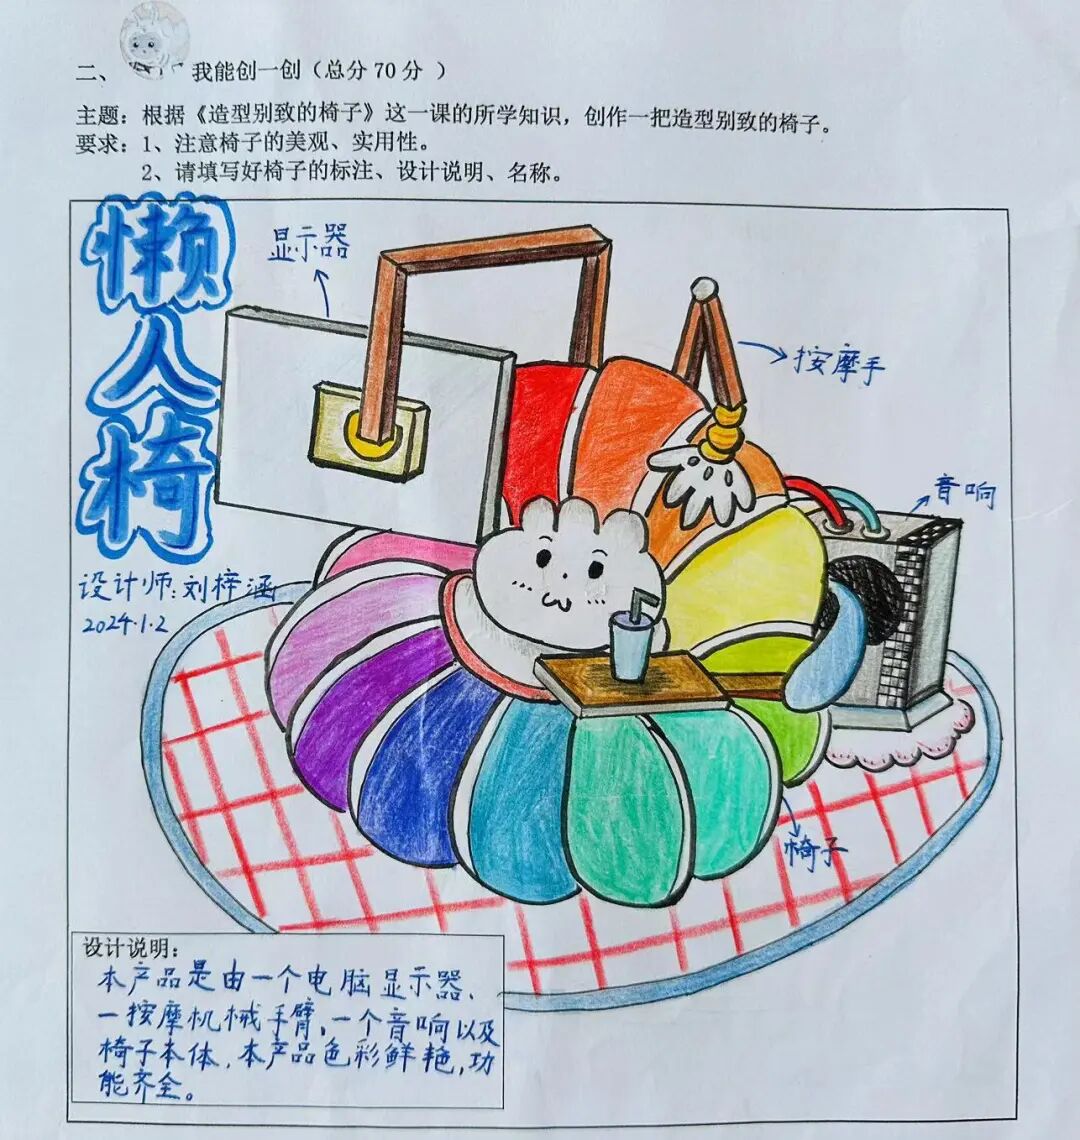 二、 我能创一创（总分70分 ）
主题：根据《造型别致的椅子》这一课的所学知识，创作一把造型别致的椅子。
要求：1、注意椅子的美观、实用性。
2、请填写好椅子的标注、设计说明、名称。
懒人椅
显示器
按摩手
音响
设计师：刘梓涵
2024.1.2
椅子
设计说明：
本产品是由一个电脑显示器、
一按摩机械手臂，一个音响以及
椅子本体，本产品色彩鲜艳，功
能齐全。